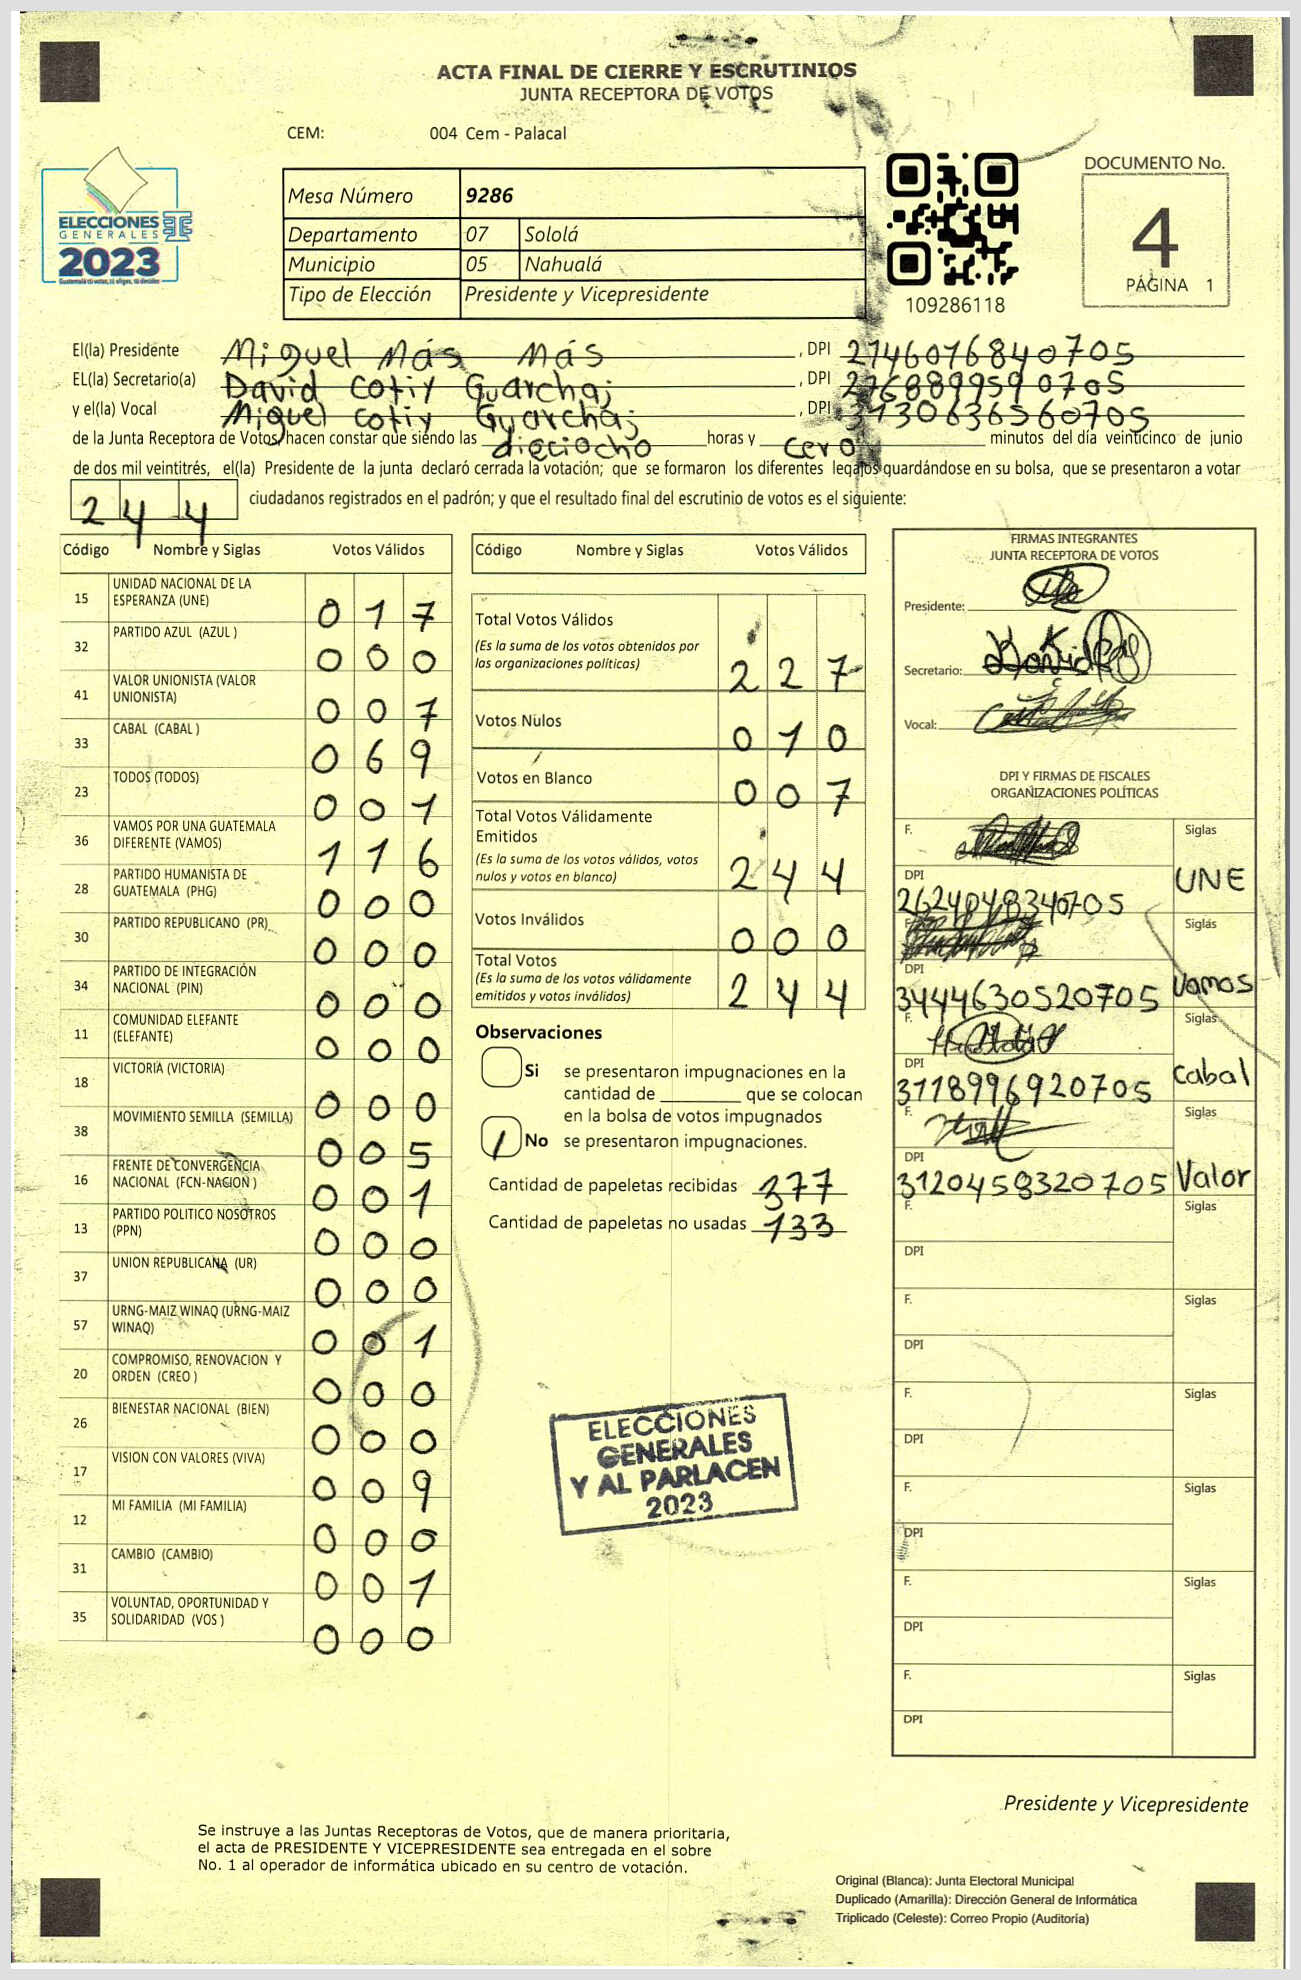 ACTA FINAL DE CIERRE Y ESCRUTINIOS
JUNTA RECEPTORA DE VOTOS
CEM: 004 Cem - Palacal
ELECCIONES
GENERALES
2023
Mesa Número 9286
Departamento 07 Sololá
Municipio 05 Nahualá
Tipo de Elección Presidente y Vicepresidente
109286118
DOCUMENTO No.
4
PÁGINA 1
El(la) Presidente Miguel Más Más , DPI 2746076840705
EL(la) Secretario(a) David Cotiy Guarchaj , DPI 2768899590705
y el(la) Vocal Miguel Cotiy Guarchaj , DPI 3130636560705
de la Junta Receptora de Votos, hacen constar que siendo las dieciocho horas y cero minutos del día veinticinco de junio
de dos mil veintitrés, el(la) Presidente de la junta declaró cerrada la votación; que se formaron los diferentes legajos guardándose en su bolsa, que se presentaron a votar
244 ciudadanos registrados en el padrón; y que el resultado final del escrutinio de votos es el siguiente:
Código Nombre y Siglas Votos Válidos
15 UNIDAD NACIONAL DE LA ESPERANZA (UNE) 017
32 PARTIDO AZUL (AZUL ) 000
41 VALOR UNIONISTA (VALOR UNIONISTA) 007
33 CABAL (CABAL ) 069
23 TODOS (TODOS) 001
36 VAMOS POR UNA GUATEMALA DIFERENTE (VAMOS) 116
28 PARTIDO HUMANISTA DE GUATEMALA (PHG) 000
30 PARTIDO REPUBLICANO (PR) 000
34 PARTIDO DE INTEGRACIÓN NACIONAL (PIN) 000
11 COMUNIDAD ELEFANTE (ELEFANTE) 000
18 VICTORIA (VICTORIA) 000
38 MOVIMIENTO SEMILLA (SEMILLA) 005
16 FRENTE DE CONVERGENCIA NACIONAL (FCN-NACION ) 001
13 PARTIDO POLITICO NOSOTROS (PPN) 000
37 UNION REPUBLICANA (UR) 000
57 URNG-MAIZ WINAQ (URNG-MAIZ WINAQ) 001
20 COMPROMISO, RENOVACION Y ORDEN (CREO ) 000
26 BIENESTAR NACIONAL (BIEN) 000
17 VISION CON VALORES (VIVA) 009
12 MI FAMILIA (MI FAMILIA) 000
31 CAMBIO (CAMBIO) 001
35 VOLUNTAD, OPORTUNIDAD Y SOLIDARIDAD (VOS ) 000
Código Nombre y Siglas Votos Válidos
Total Votos Válidos
(Es la suma de los votos obtenidos por
las organizaciones políticas) 227
Votos Nulos 010
Votos en Blanco 007
Total Votos Válidamente
Emitidos
(Es la suma de los votos válidos, votos
nulos y votos en blanco) 244
Votos Inválidos 000
Total Votos
(Es la suma de los votos válidamente
emitidos y votos inválidos) 244
Observaciones
Si se presentaron impugnaciones en la
cantidad de ________ que se colocan
en la bolsa de votos impugnados
No se presentaron impugnaciones.
Cantidad de papeletas recibidas 377
Cantidad de papeletas no usadas 133
ELECCIONES
GENERALES
Y AL PARLACEN
2023
FIRMAS INTEGRANTES
JUNTA RECEPTORA DE VOTOS
Presidente:
Secretario:
Vocal:
DPI Y FIRMAS DE FISCALES
ORGANIZACIONES POLÍTICAS
F. Siglas
DPI UNE
2624048340705
F. Siglas
DPI Vamos
3444630520705
F. Siglas
DPI Cabal
3118996920705
F. Siglas
DPI Valor
3120458320705
F. Siglas
DPI
F. Siglas
DPI
F. Siglas
DPI
F. Siglas
DPI
F. Siglas
DPI
F. Siglas
DPI
Presidente y Vicepresidente
Se instruye a las Juntas Receptoras de Votos, que de manera prioritaria,
el acta de PRESIDENTE Y VICEPRESIDENTE sea entregada en el sobre
No. 1 al operador de informática ubicado en su centro de votación.
Original (Blanca): Junta Electoral Municipal
Duplicado (Amarilla): Dirección General de Informática
Triplicado (Celeste): Correo Propio (Auditoría)